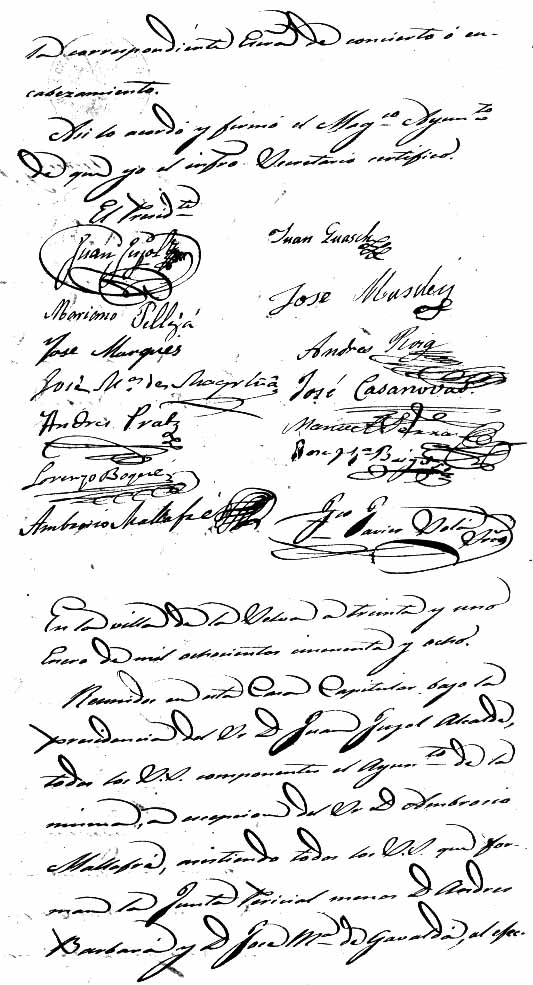 la correspondiente Escra de concierto ó en-
cabezamiento.
Asi lo acordó y firmó el Magco Ayunto
de que yo el infro Secretario certifico.
El Presidte
Juan Pujol
Juan Guasch
Mariano Pellejá
Jose Masdeu
Jose Marqués
Andres Roig
José Ma de Magriñá
José Casanovas.
Andres Prats
Manuel
Lorenzo Boquer
Ambrosio Mallafré
Fco Javier
En la villa de la Selva a treinta y uno
Enero de mil ochocientos cincuenta y ocho.
Reunidos en esta Casa Capitular bajo la
presidencia del Sr D. Juan Pujol Alcalde,
todos los S.S. componentes el Ayunto de la
misma, a escepcion del Sr D. Ambrosio
Mallafré, asistiendo todos los S.S. que for-
man la Junta Pericial menos D. Andres
Barbará y D. Jose Ma de Gavaldá, al efec-